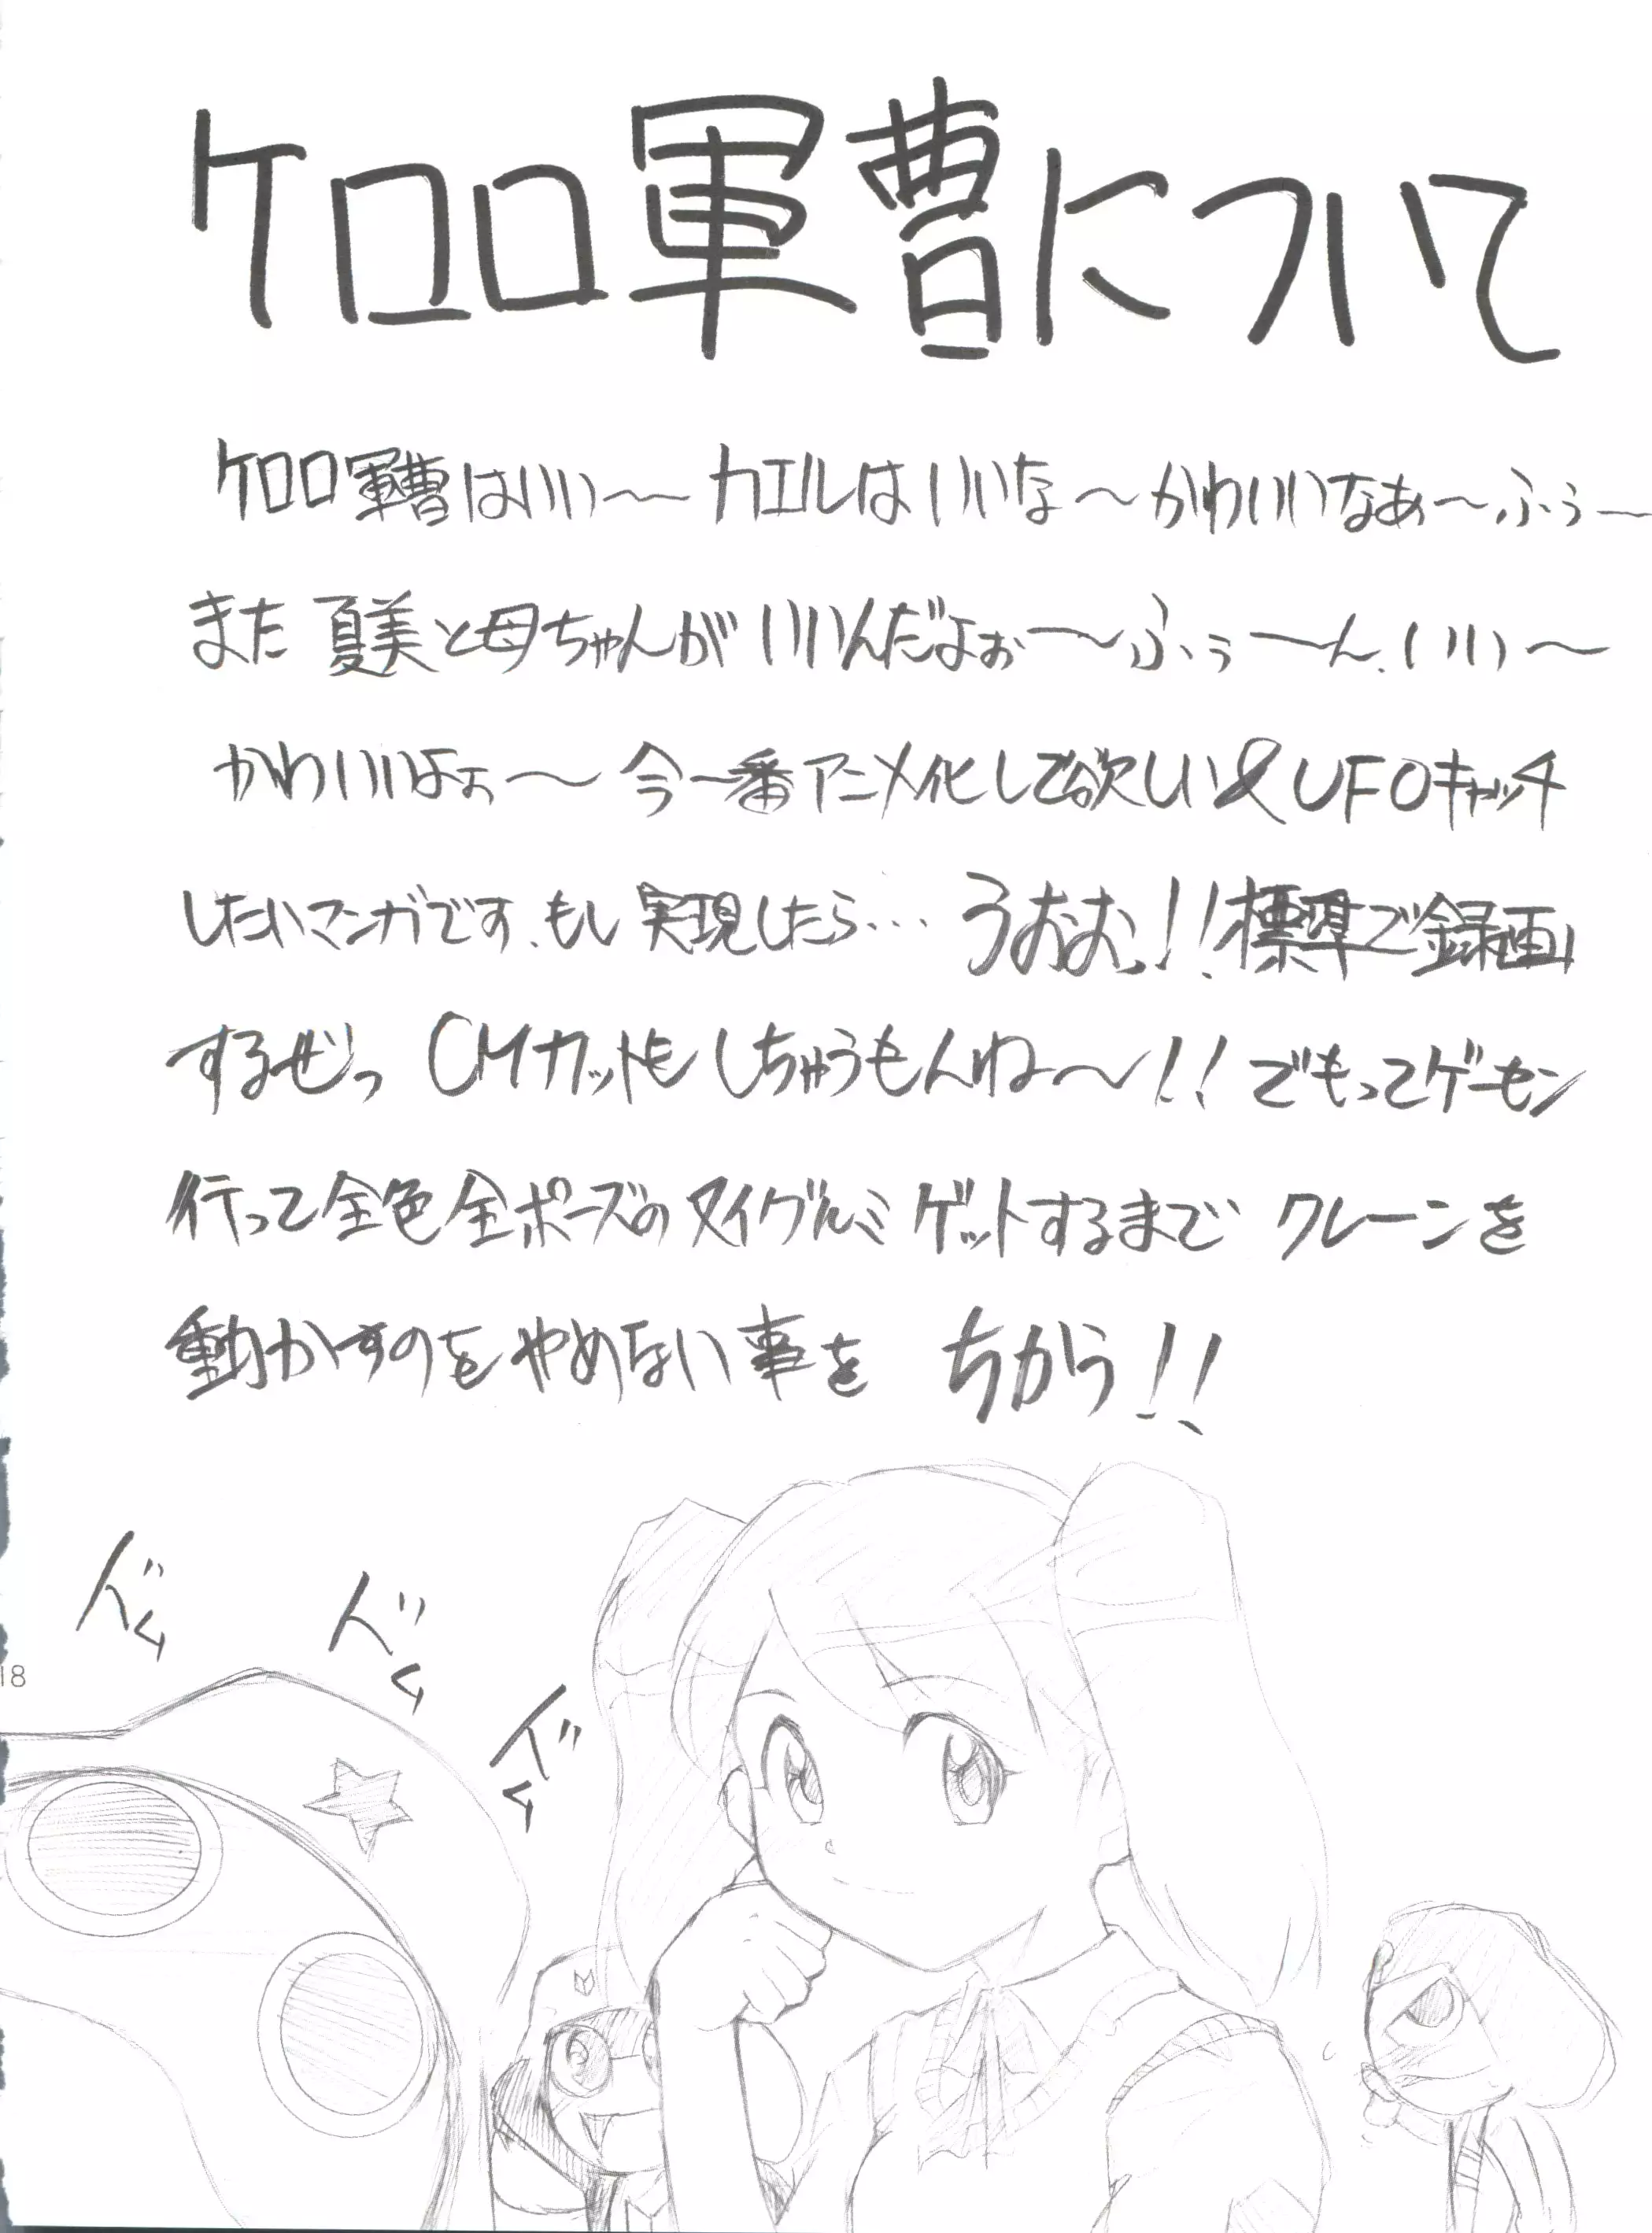 ケロロ軍曹について
ケロロ軍曹はいい〜カエルはいいな〜かわいいなぁ〜ふぅ〜
また夏美と母ちゃんがいいんだよぉ〜ふぅ〜ん、いい〜
かわいいよぉ〜今一番アニメ化して欲しい&UFOキャッチ
したいマンガです、もし実現したら…うおお!!標準で録画
するぜっ CMカットもしちゃうもんね〜!!でもってゲーセン
行って全色全ポーズのヌイグルミゲットするまでクレーンを
動かすのをやめない事をちかう!!
ドム
ドム
ドム
18